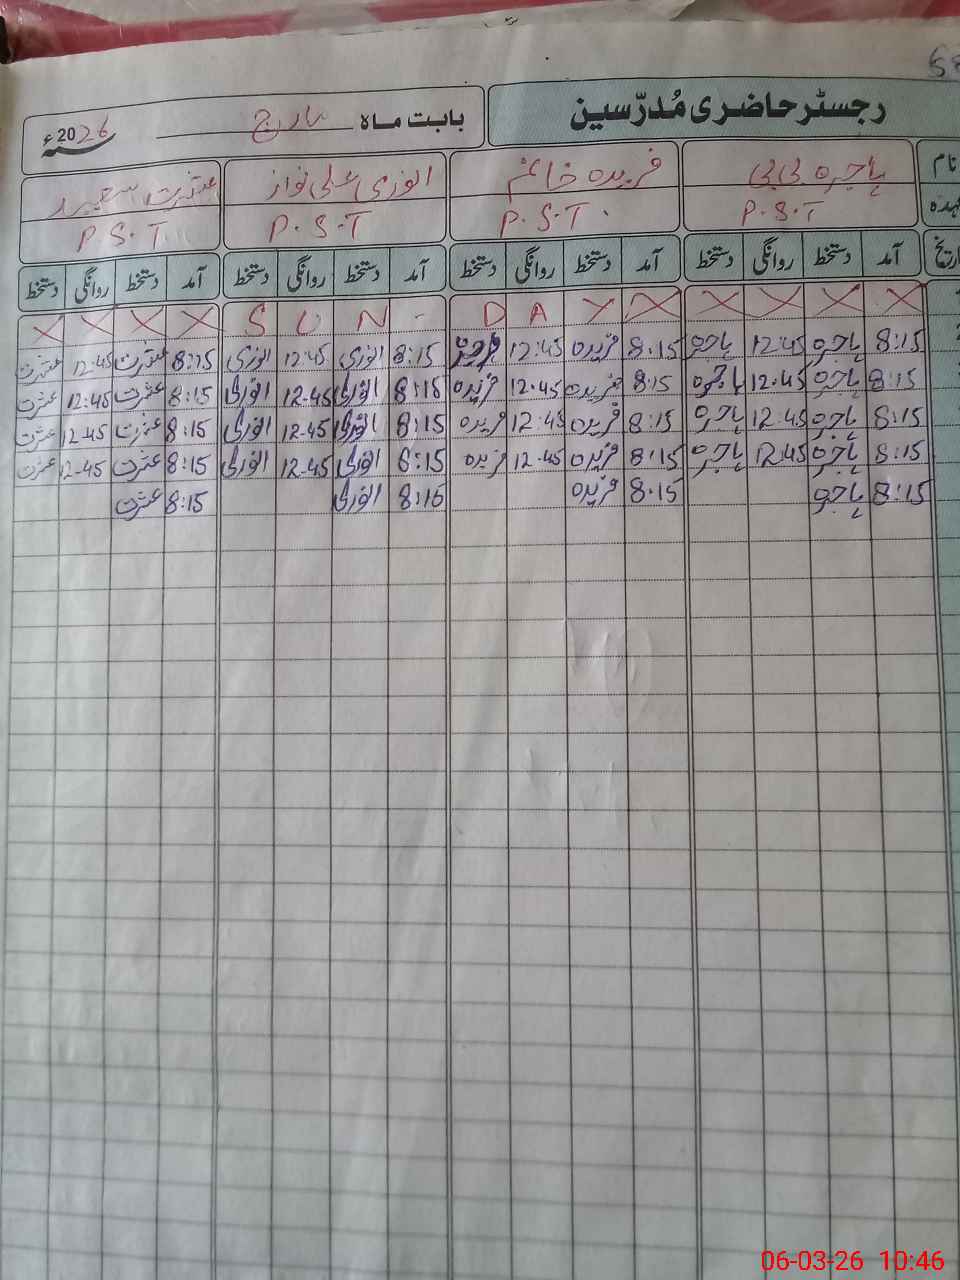 رجسٹر حاضری مُدرّسین
بابت ماہ مارچ سنہ 2026ء
نام ہاجرہ بی بی فریدہ خانم انوری علی نواز عشرت سعید
عہدہ P.S.T P.S.T. P.S.T P.S.T
تاریخ آمد دستخط روانگی دستخط آمد دستخط روانگی دستخط آمد دستخط روانگی دستخط آمد دستخط روانگی دستخط
X X X X S U N - D A Y X X X X X
8:15 ہاجرہ 12:45 ہاجرہ 8:15 فریدہ 12:45 8:15 انوری 12:45 انوری 8:15 عشرت 12:45 عشرت
8:15 ہاجرہ 12.45 ہاجرہ 8:15 فریدہ 12.45 فریدہ 8:15 انوری 12.45 انوری 8:15 عشرت 12:45 عشرت
8:15 ہاجرہ 12:45 ہاجرہ 8:15 فریدہ 12:45 فریدہ 8:15 انوری 12.45 انوری 8:15 عشرت 12-45 عشرت
8:15 ہاجرہ 12:45 ہاجرہ 8:15 فریدہ 12.45 فریدہ 8:15 انوری 12.45 انوری 8:15 عشرت 12-45 عشرت
8:15 ہاجرہ 8.15 فریدہ 8:15 انوری 8:15 عشرت
06-03-26 10:46